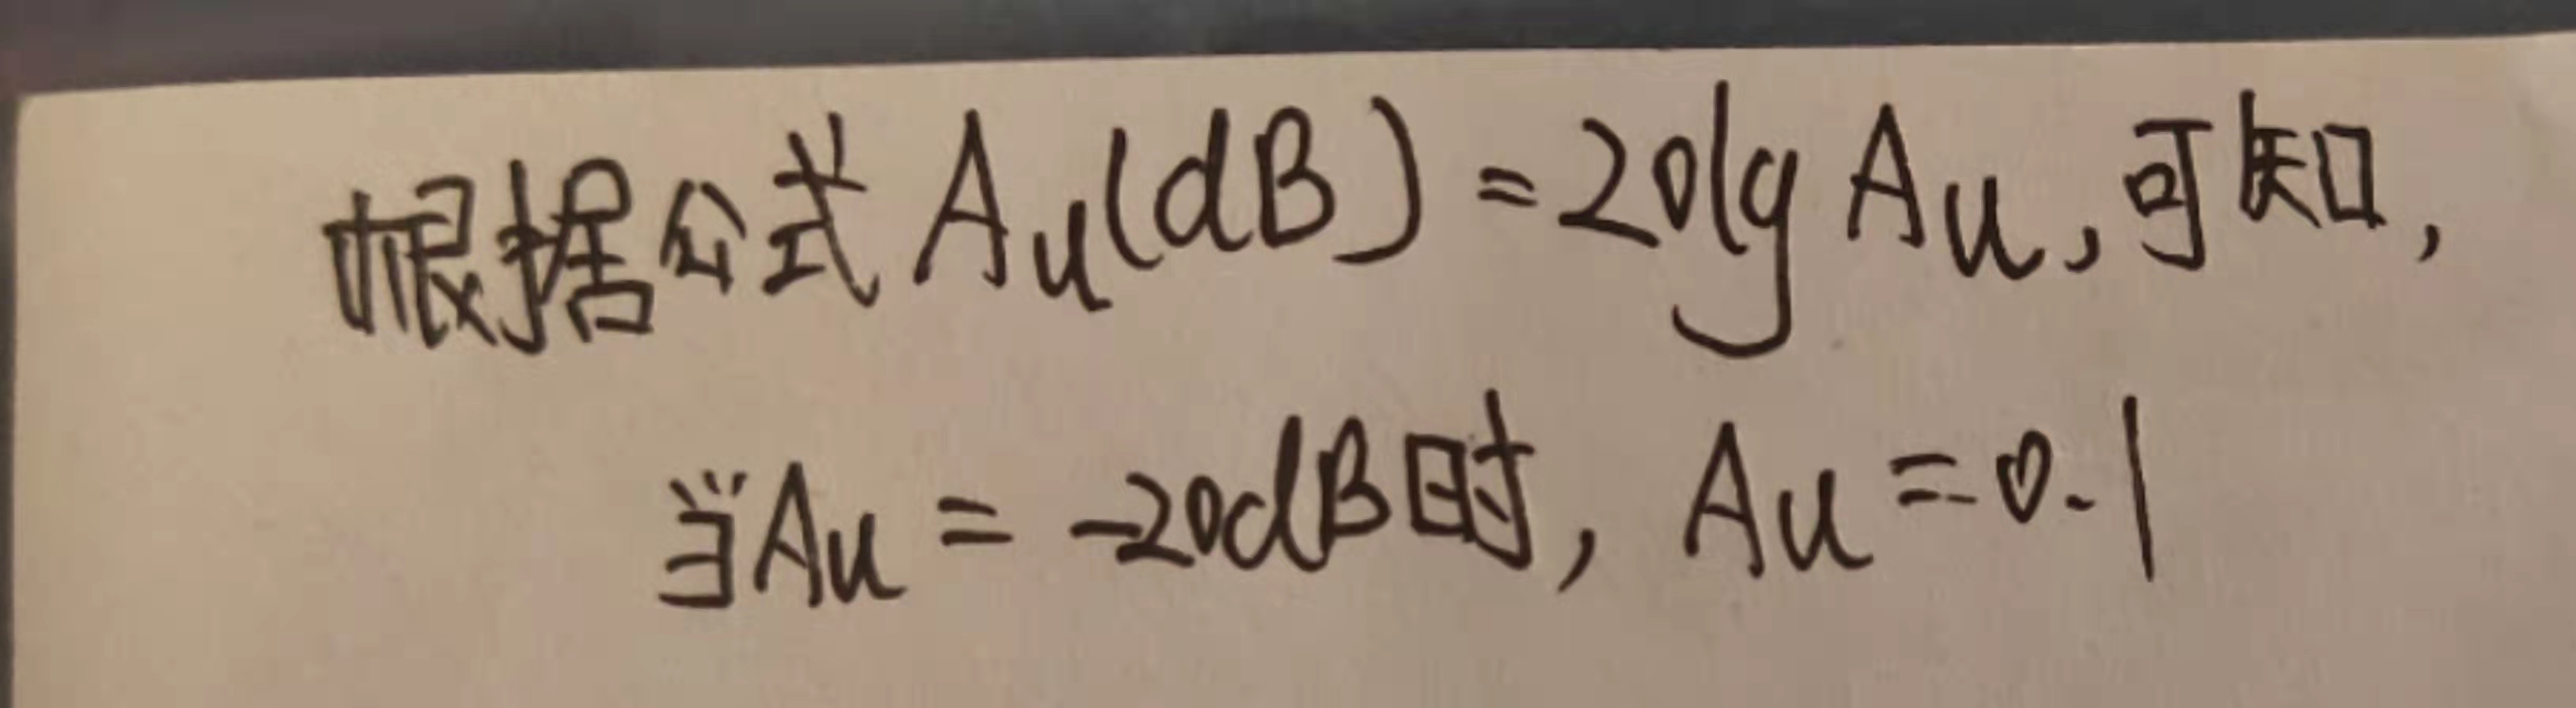 根据公式 Au(dB)=20lg Au,可知,
当Au = -20dB时, Au=0.1